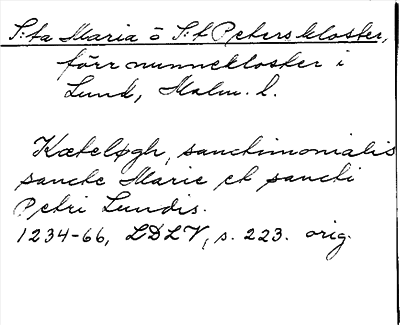 S:ta Maria o S:t Peters kloster,
förr nunnekloster i
Lund, Malm. l.
Kæteløgh, sanctimonialis
sancte Marie et sancti
Petri Lundis.
1234-66, LDLV, s. 223. orig.